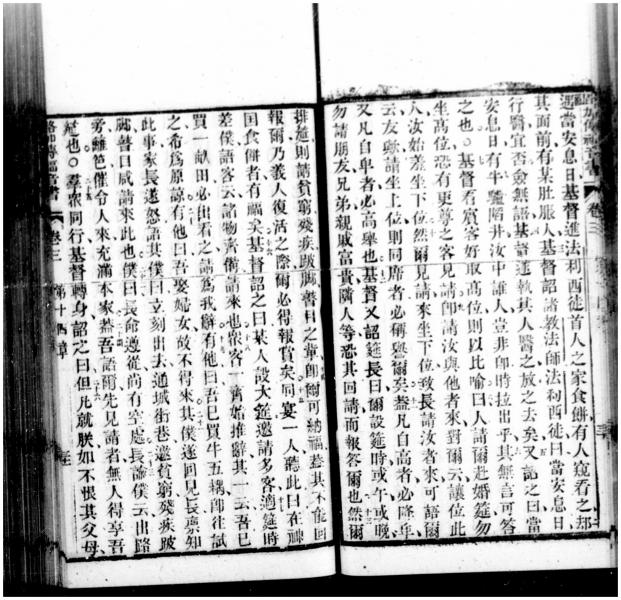 路加傳福音書 卷三
遇當安息日基督進法利西徒首人之家食餅有人窺看之却
其面前有某肚脹人基督詔諸教法師法利西徒曰當安息日
行醫宜否僉無語基督遂執其人醫之放之去矣又詔之曰當
安息日有牛驢陷井汝中誰人豈非即時拉出乎其無言可答
之也○基督看賓客好取髙位則以比喻曰人請爾赴婚筵勿
坐髙位恐有更尊之客見請即請汝與他者來對爾云讓位此
人汝始羞坐下位然爾見請來坐下位致長請汝者來可語爾
云友歟請坐上位則同席者必稱譽爾矣盖凡自高者必降年
又凡自卑者必高舉也基督又詔筵長曰爾設筵時或午或晚
勿請朋友兄弟親戚富貴隣人等恐其回請而報答爾也然爾
排筵則請貧窮殘疾跛脚瞽目之輩即爾可納福盖其不能回
報爾乃義人復活之際爾必得報賞矣同宴一人聽此曰在神
國食餅者有福矣基督詔之曰某人設大筵邀請多客適筵時
差僕語客云諸物齊備請來也眾客一齊始推辭其一云吾已
買一畝田必出看之請為我辭有他曰吾已買牛五耦即往試
之希為原諒有他曰吾娶婦女故不得來其僕遂回見長禀知
此事家長遂怒語其僕曰立刻出去通城街巷邀貧窮殘疾跛
脚瞽目咸請來此也僕曰長命遵從尚有空處長諭僕云出路
旁籬笆催令人來充滿本家盖吾語爾先見請者無人得享吾
筵也○羣眾同行基督轉身詔之曰但凡就朕如不恨其父母
路加傳福音書 卷三 第十四章